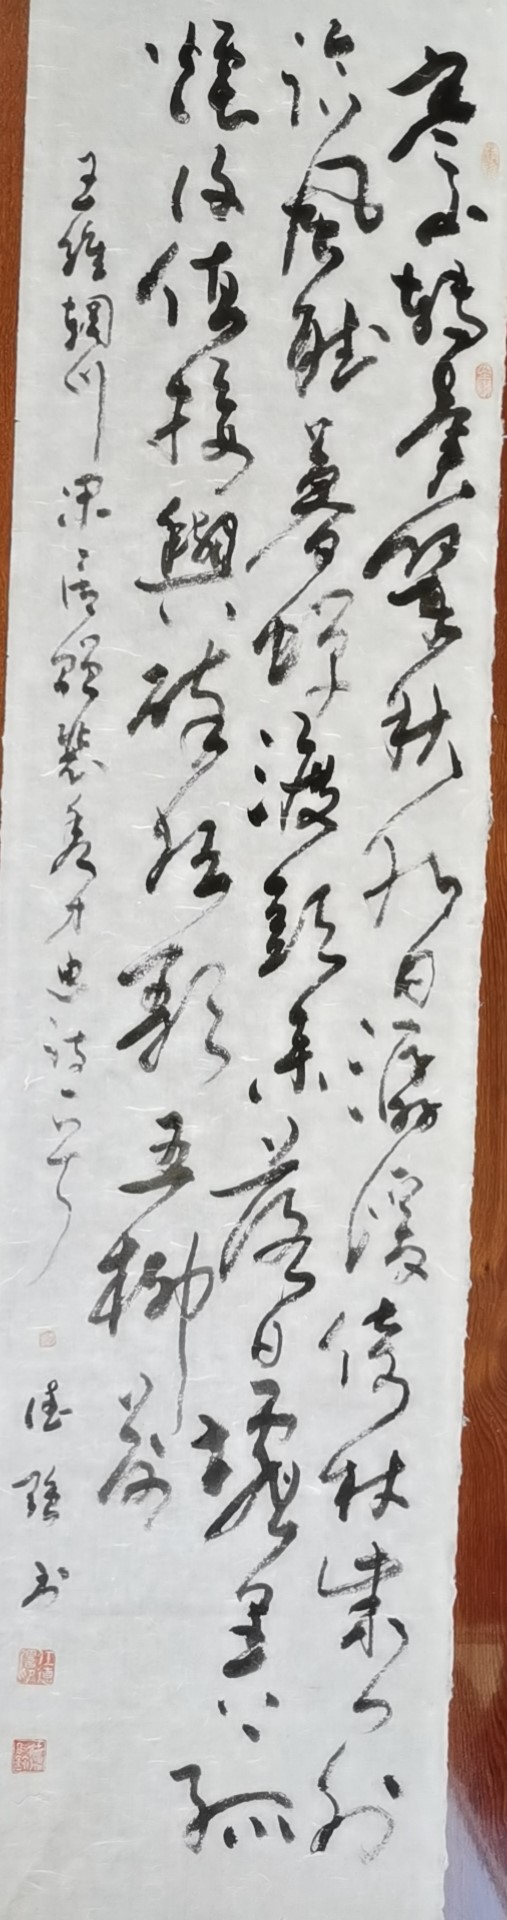 寒山轉蒼翠秋水日潺湲倚杖柴門外
臨風聽暮蟬渡頭余落日墟里上孤
煙復值接輿醉狂歌五柳前
王維輞川閑居贈裴秀才迪詩一首
德 书